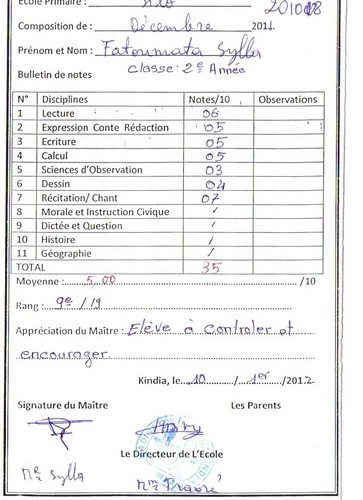 Ecole Primaire :
Composition de : Décembre 2011.
Prénom et Nom : Fatoumata Sylla
classe: 2e Année
Bulletin de notes
N° Disciplines Notes/10 Observations
1 Lecture 06
2 Expression Conte Rédaction 05
3 Ecriture 05
4 Calcul 05
5 Sciences d'Observation 03
6 Dessin 04
7 Récitation/ Chant 07
8 Morale et Instruction Civique /
9 Dictée et Question /
10 Histoire /
11 Géographie /
TOTAL 35
Moyenne : 5,00 /10
Rang : 9e/19
Appréciation du Maître : Elève à controler et
encourager
Kindia, le 10 / 1er /2012
Signature du Maître Les Parents
Le Directeur de L'Ecole
Mr Sylla